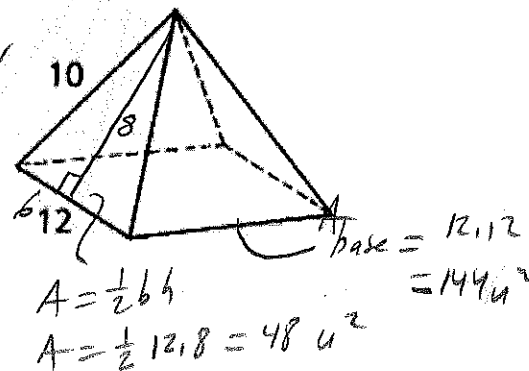 10
8
6
12
A
base = 12.12
= 144 u²
A = ½ b h
A = ½ 12.8 = 48 u²